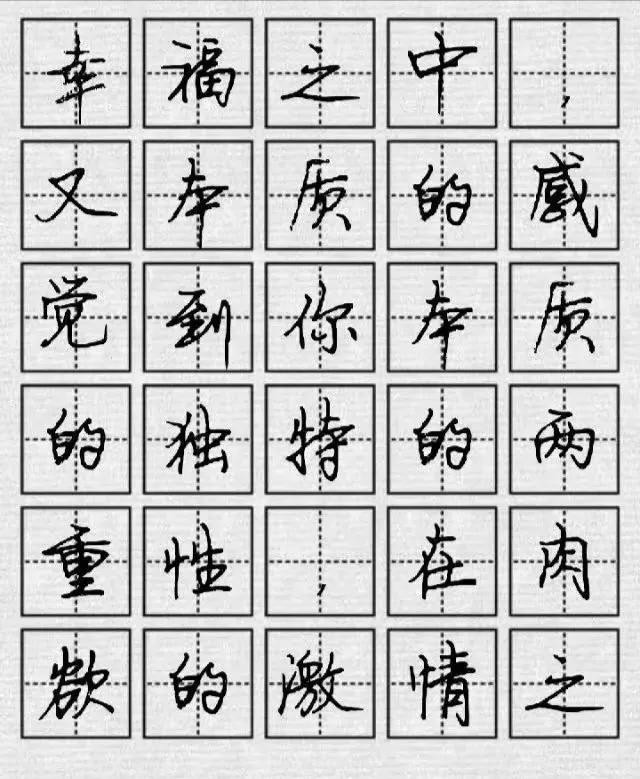 幸福之中，
又本质的感
觉到你本质
的独特的两
重性，在肉
欲的激情之